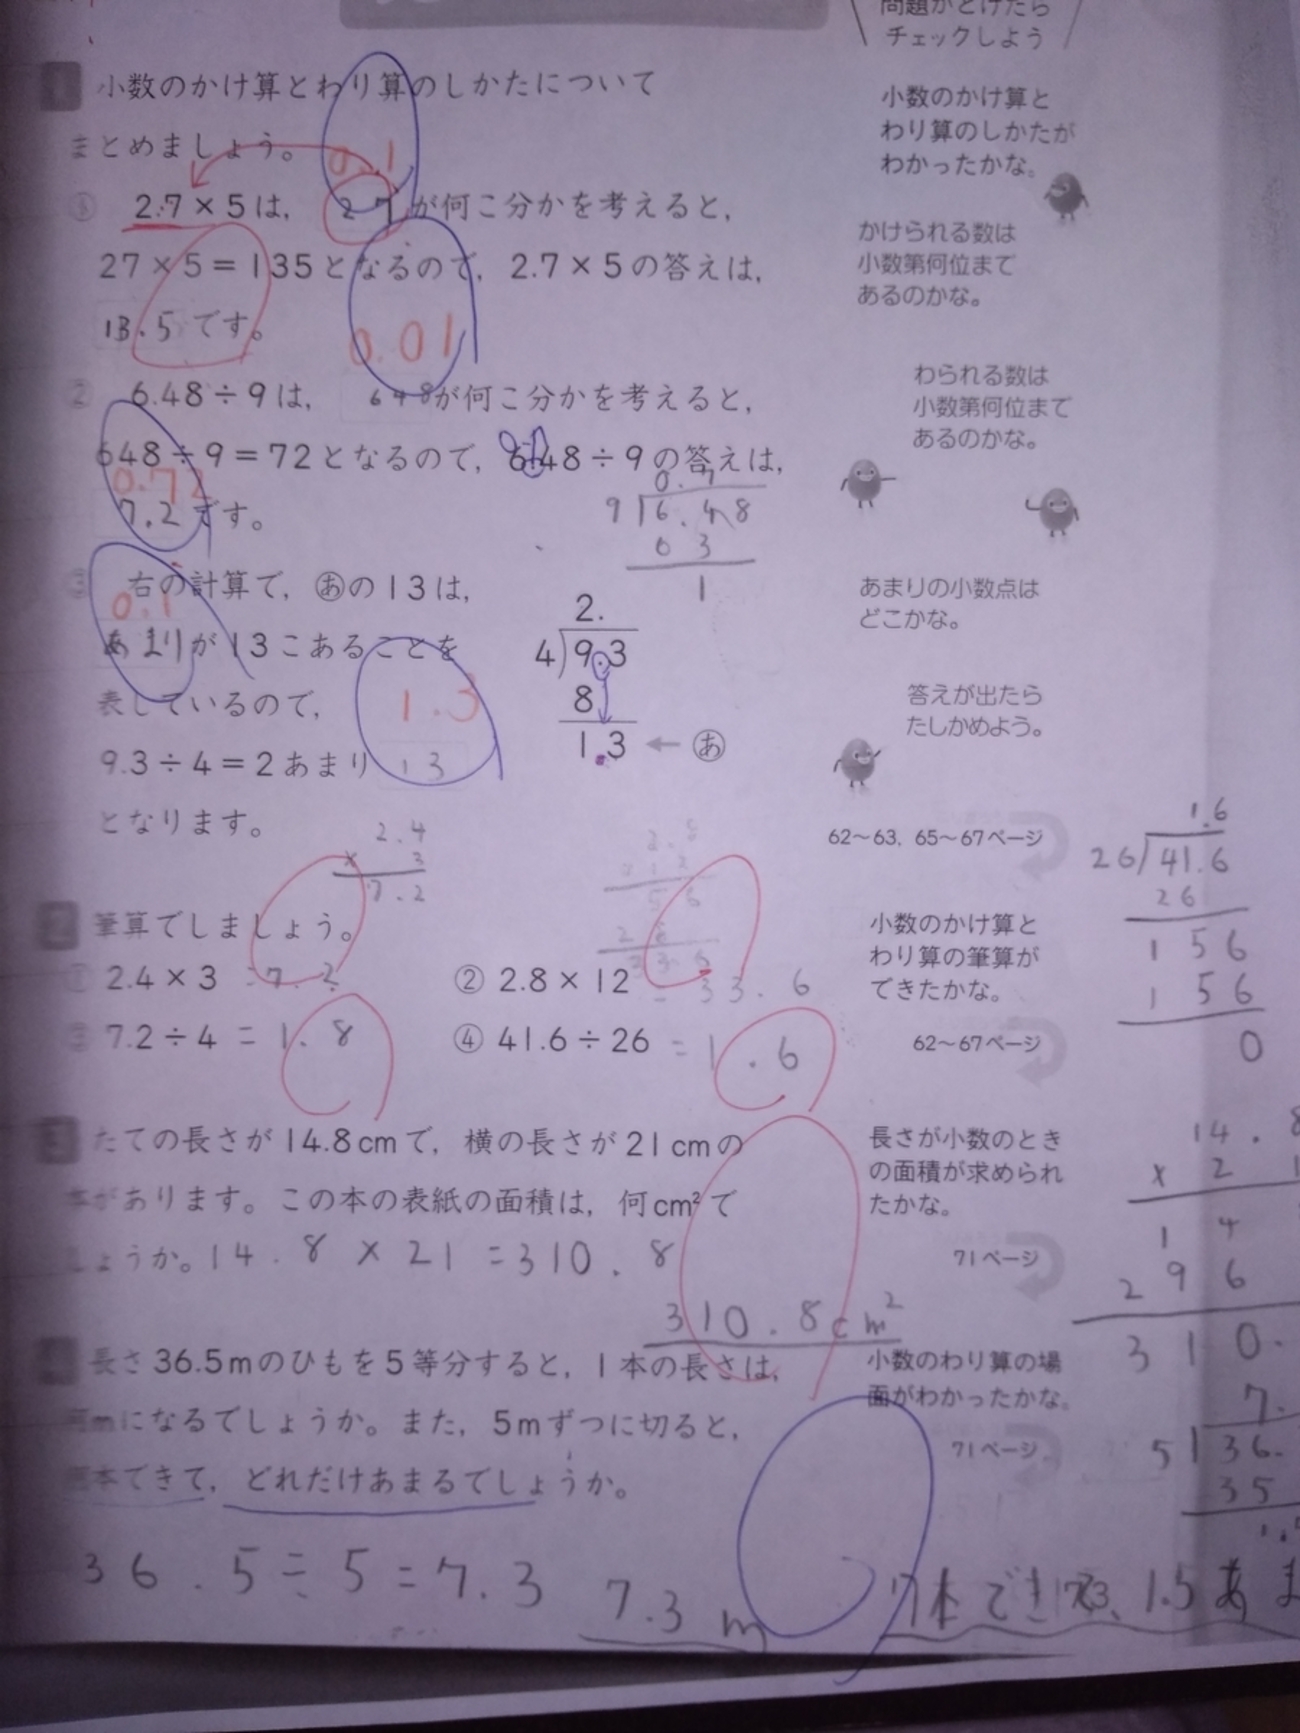 問題がとけたら
チェックしよう
1 小数のかけ算とわり算のしかたについて
まとめましょう。
0.1
2.7×5は, 27が何こ分かを考えると,
27×5=135となるので, 2.7×5の答えは,
13.5です。
0.01
② 6.48÷9は, 648が何こ分かを考えると,
648÷9=72となるので, 6.48÷9の答えは,
0.72
7.2です。
0.7
9 6.48
63
1
③ 右の計算で, あの13は,
0.1
あまりが13こあることを
表しているので,
1.3
9.3÷4=2あまり 13
となります。
2.
4)9.3
8
1.3 ← あ
小数のかけ算と
わり算のしかたが
わかったかな。
かけられる数は
小数第何位まで
あるのかな。
わられる数は
小数第何位まで
あるのかな。
あまりの小数点は
どこかな。
答えが出たら
たしかめよう。
62〜63, 65〜67ページ
2.4
× 3
7.2
2 筆算でしましょう。
① 2.4×3 =7.2
② 2.8×12 = 33.6
③ 7.2÷4 = 1.8
④ 41.6÷26 = 1.6
小数のかけ算と
わり算の筆算が
できたかな。
62〜67ページ
1.6
26)41.6
26
156
156
0
3 たての長さが14.8cmで, 横の長さが21cmの
本があります。この本の表紙の面積は, 何cm²で
しょうか。14.8×21=310.8
310.8cm²
長さが小数のとき
の面積が求められ
たかな。
71ページ
14.8
× 2 1
1 4
2 9 6
3 1 0.
4 長さ36.5mのひもを5等分すると, 1本の長さは,
何mになるでしょうか。また, 5mずつに切ると,
何本できて, どれだけあまるでしょうか。
小数のわり算の場
面がわかったかな。
71ページ
7.
5 36.
35
1.5
36.5÷5=7.3
7.3 m
7本できて、1.5あま